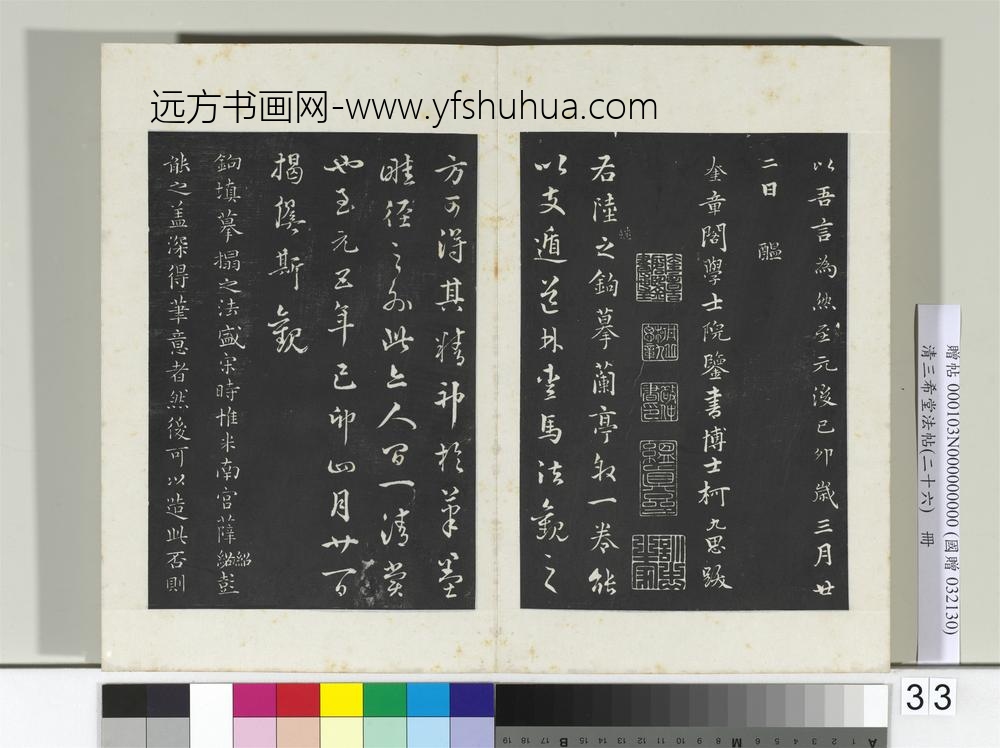 远方书画网-www.yfshuhua.com
以吾言為然至元後己卯歲三月廿
二日 醞
奎章閣學士院鑒書博士柯九思跋
君陸之鉤摹蘭亭敘一卷能
以支遁道林愛馬法觀之
方可得其精神於筆墨
畦徑之外此亦人間一清賞
也至元五年己卯四月廿一日
揭傒斯觀
鉤填摹搨之法盛宋時惟米南宮薛紹彭
能之盖深得筆意者然後可以造此否則
贈帖 000103N000000000 (國贈 032130)
清三希堂法帖(二十六) 冊
33